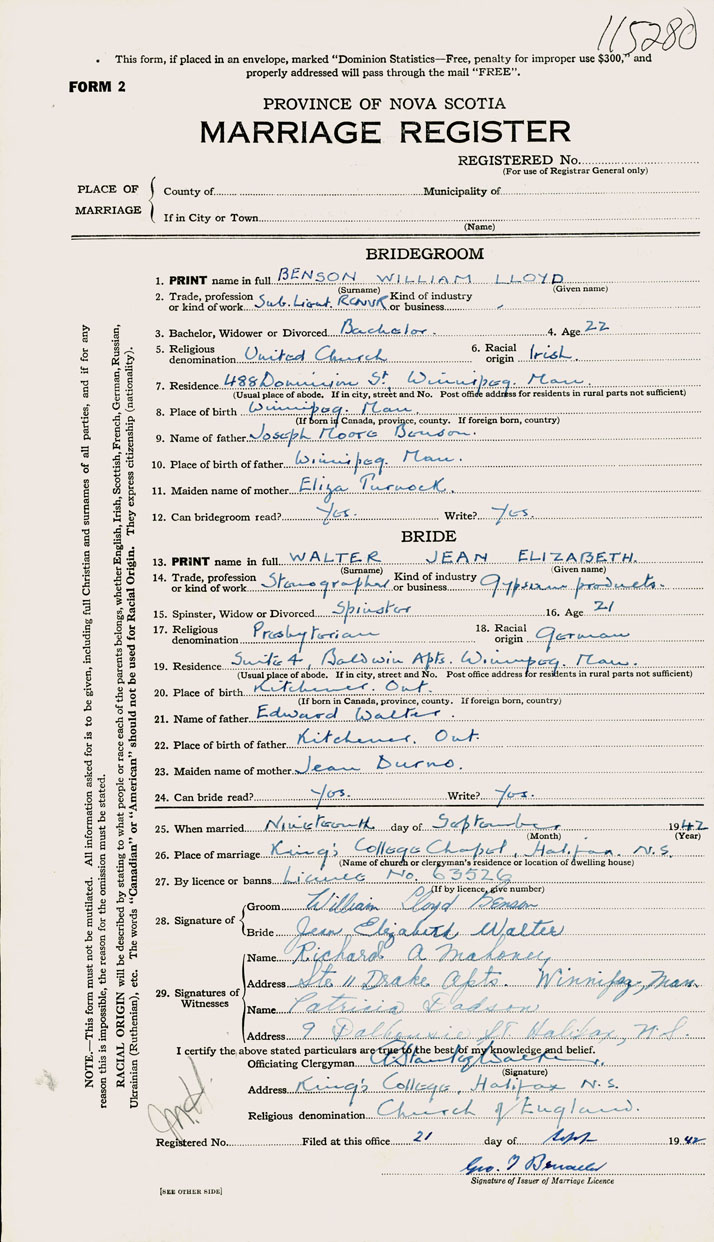 115280
• This form, if placed in an envelope, marked "Dominion Statistics—Free, penalty for improper use $300," and
properly addressed will pass through the mail "FREE".
FORM 2
PROVINCE OF NOVA SCOTIA
MARRIAGE REGISTER
REGISTERED No.
(For use of Registrar General only)
PLACE OF MARRIAGE
County of Municipality of
If in City or Town
(Name)
BRIDEGROOM
1. PRINT name in full BENSON WILLIAM LLOYD
(Surname) (Given name)
2. Trade, profession or kind of work Sub. Lieut. RCNVR Kind of industry or business
3. Bachelor, Widower or Divorced Bachelor. 4. Age 22
5. Religious denomination United Church 6. Racial origin Irish.
7. Residence 488 Dominion St, Winnipeg. Man.
(Usual place of abode. If in city, street and No. Post office address for residents in rural parts not sufficient)
8. Place of birth Winnipeg. Man.
(If born in Canada, province, county. If foreign born, country)
9. Name of father Joseph Moore Benson.
10. Place of birth of father Winnipeg. Man.
11. Maiden name of mother Eliza Turnock.
12. Can bridegroom read? Yes. Write? Yes.
BRIDE
13. PRINT name in full WALTER JEAN ELIZABETH.
(Surname) (Given name)
14. Trade, profession or kind of work Stenographer Kind of industry or business Gypsum products.
15. Spinster, Widow or Divorced Spinster 16. Age 21
17. Religious denomination Presbyterian 18. Racial origin German
19. Residence Suite 4, Baldwin Apts. Winnipeg. Man.
(Usual place of abode. If in city, street and No. Post office address for residents in rural parts not sufficient)
20. Place of birth Kitchener. Ont.
(If born in Canada, province, county. If foreign born, country)
21. Name of father Edward Walter.
22. Place of birth of father Kitchener. Ont.
23. Maiden name of mother Jean Durno.
24. Can bride read? Yes. Write? Yes.
25. When married Nineteenth day of September 1942
(Month) (Year)
26. Place of marriage King's College Chapel, Halifax. N.S.
(Name of church or clergyman's residence or location of dwelling house)
27. By licence or banns Licence No. 63526
(If by licence, give number)
28. Signature of Groom William Lloyd Benson
Bride Jean Elizabeth Walter
29. Signatures of Witnesses
Name Richard A Mahoney
Address Ste 11 Drake Apts. Winnipeg, Man.
Name Patricia Dadson
Address 9 Dalhousie St Halifax, N.S.
I certify the above stated particulars are true to the best of my knowledge and belief.
Officiating Clergyman
(Signature)
Address King's College, Halifax N.S.
Religious denomination Church of England.
Registered No. Filed at this office 21 day of Sept 1942
Geo.
Signature of Issuer of Marriage Licence
[SEE OTHER SIDE]
NOTE.—This form must not be mutilated. All information asked for is to be given, including full Christian and surnames of all parties, and if for any
reason this is impossible, the reason for the omission must be stated.
RACIAL ORIGIN will be described by stating to what people or race each of the parents belongs, whether English, Irish, Scottish, French, German, Russian,
Ukrainian (Ruthenian), etc. The words "Canadian" or "American" should not be used for Racial Origin. They express citizenship (nationality).